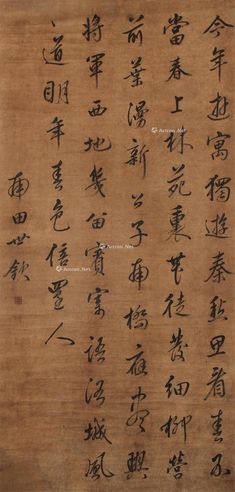 今年遊寓獨遊秦愁思看春不
當春上林苑裏花徒發細柳營
前葉漫新公子南橋應盡興
將軍西地幾留賓寄語洛城風
日道明年春色倍還人
田世
Artron.Net
Artron.Net
Artron.Net